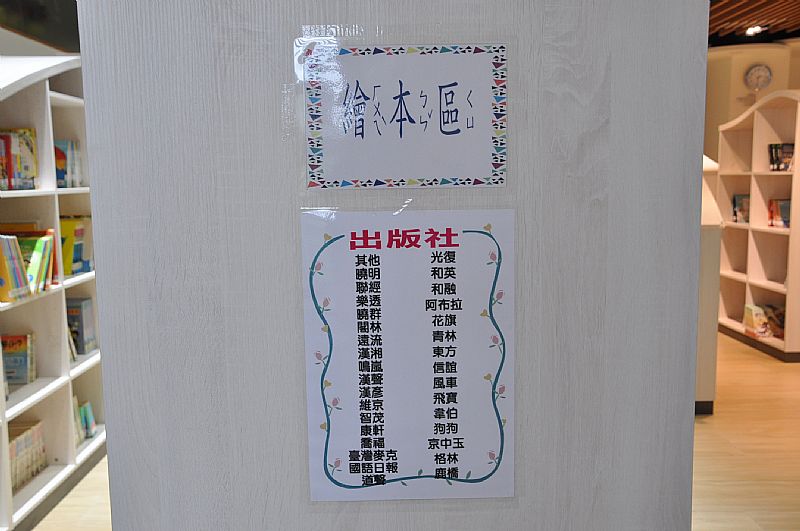 繪ㄏㄨㄟˋ本ㄅㄣˇ區ㄑㄩ
出版社
其他
曉明
聯經
樂透
曉群
閣林
遠流
漢湘
鳴嵐
漢聲
漢彥
維京
智茂
康軒
喬福
臺灣麥克
國語日報
道聲
光復
和英
和融
阿布拉
花旗
青林
東方
信誼
風車
飛寶
韋伯
狗狗
京中玉
格林
鹿橋